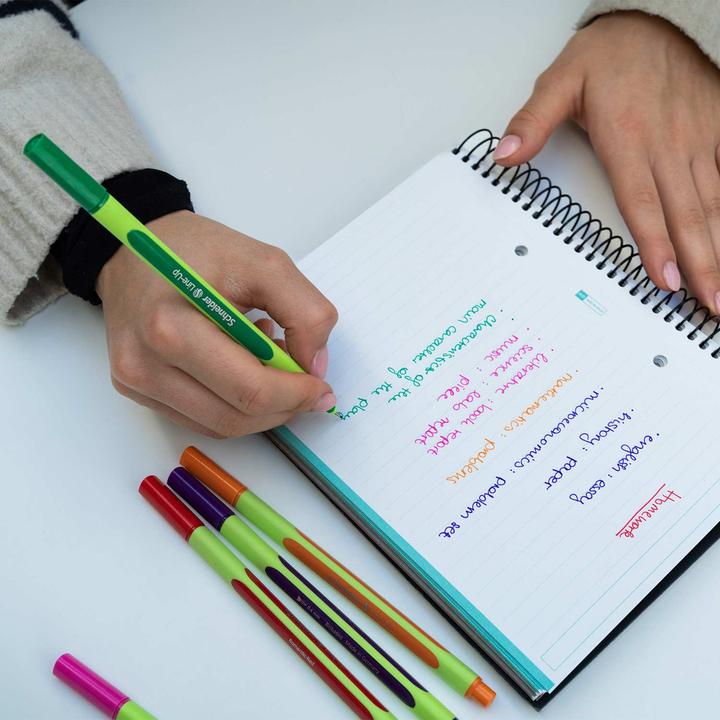 Homework
• english : essay
• history : paper
• microeconomics : problem set
• mathematics : problems
• literature : book report
• science : lab report
• music : piece
• characteristics of the
main character of the play
Schneider Line-Up